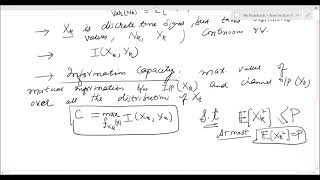 Var(Nk) =
→ Xk is discrete time signal, but takes
values, Nk, Yk) continuous RV.
→ I(Xk, Yk)
→ Information Capacity. max. value of
mutual information b/w I/P (Xk) and channel O/P (Yk)
over all the distribution of Xk
C = max I(Xk, Yk) s.t E[Xk²] ≤ P
fXk(x)
At most E[Xk²]=P